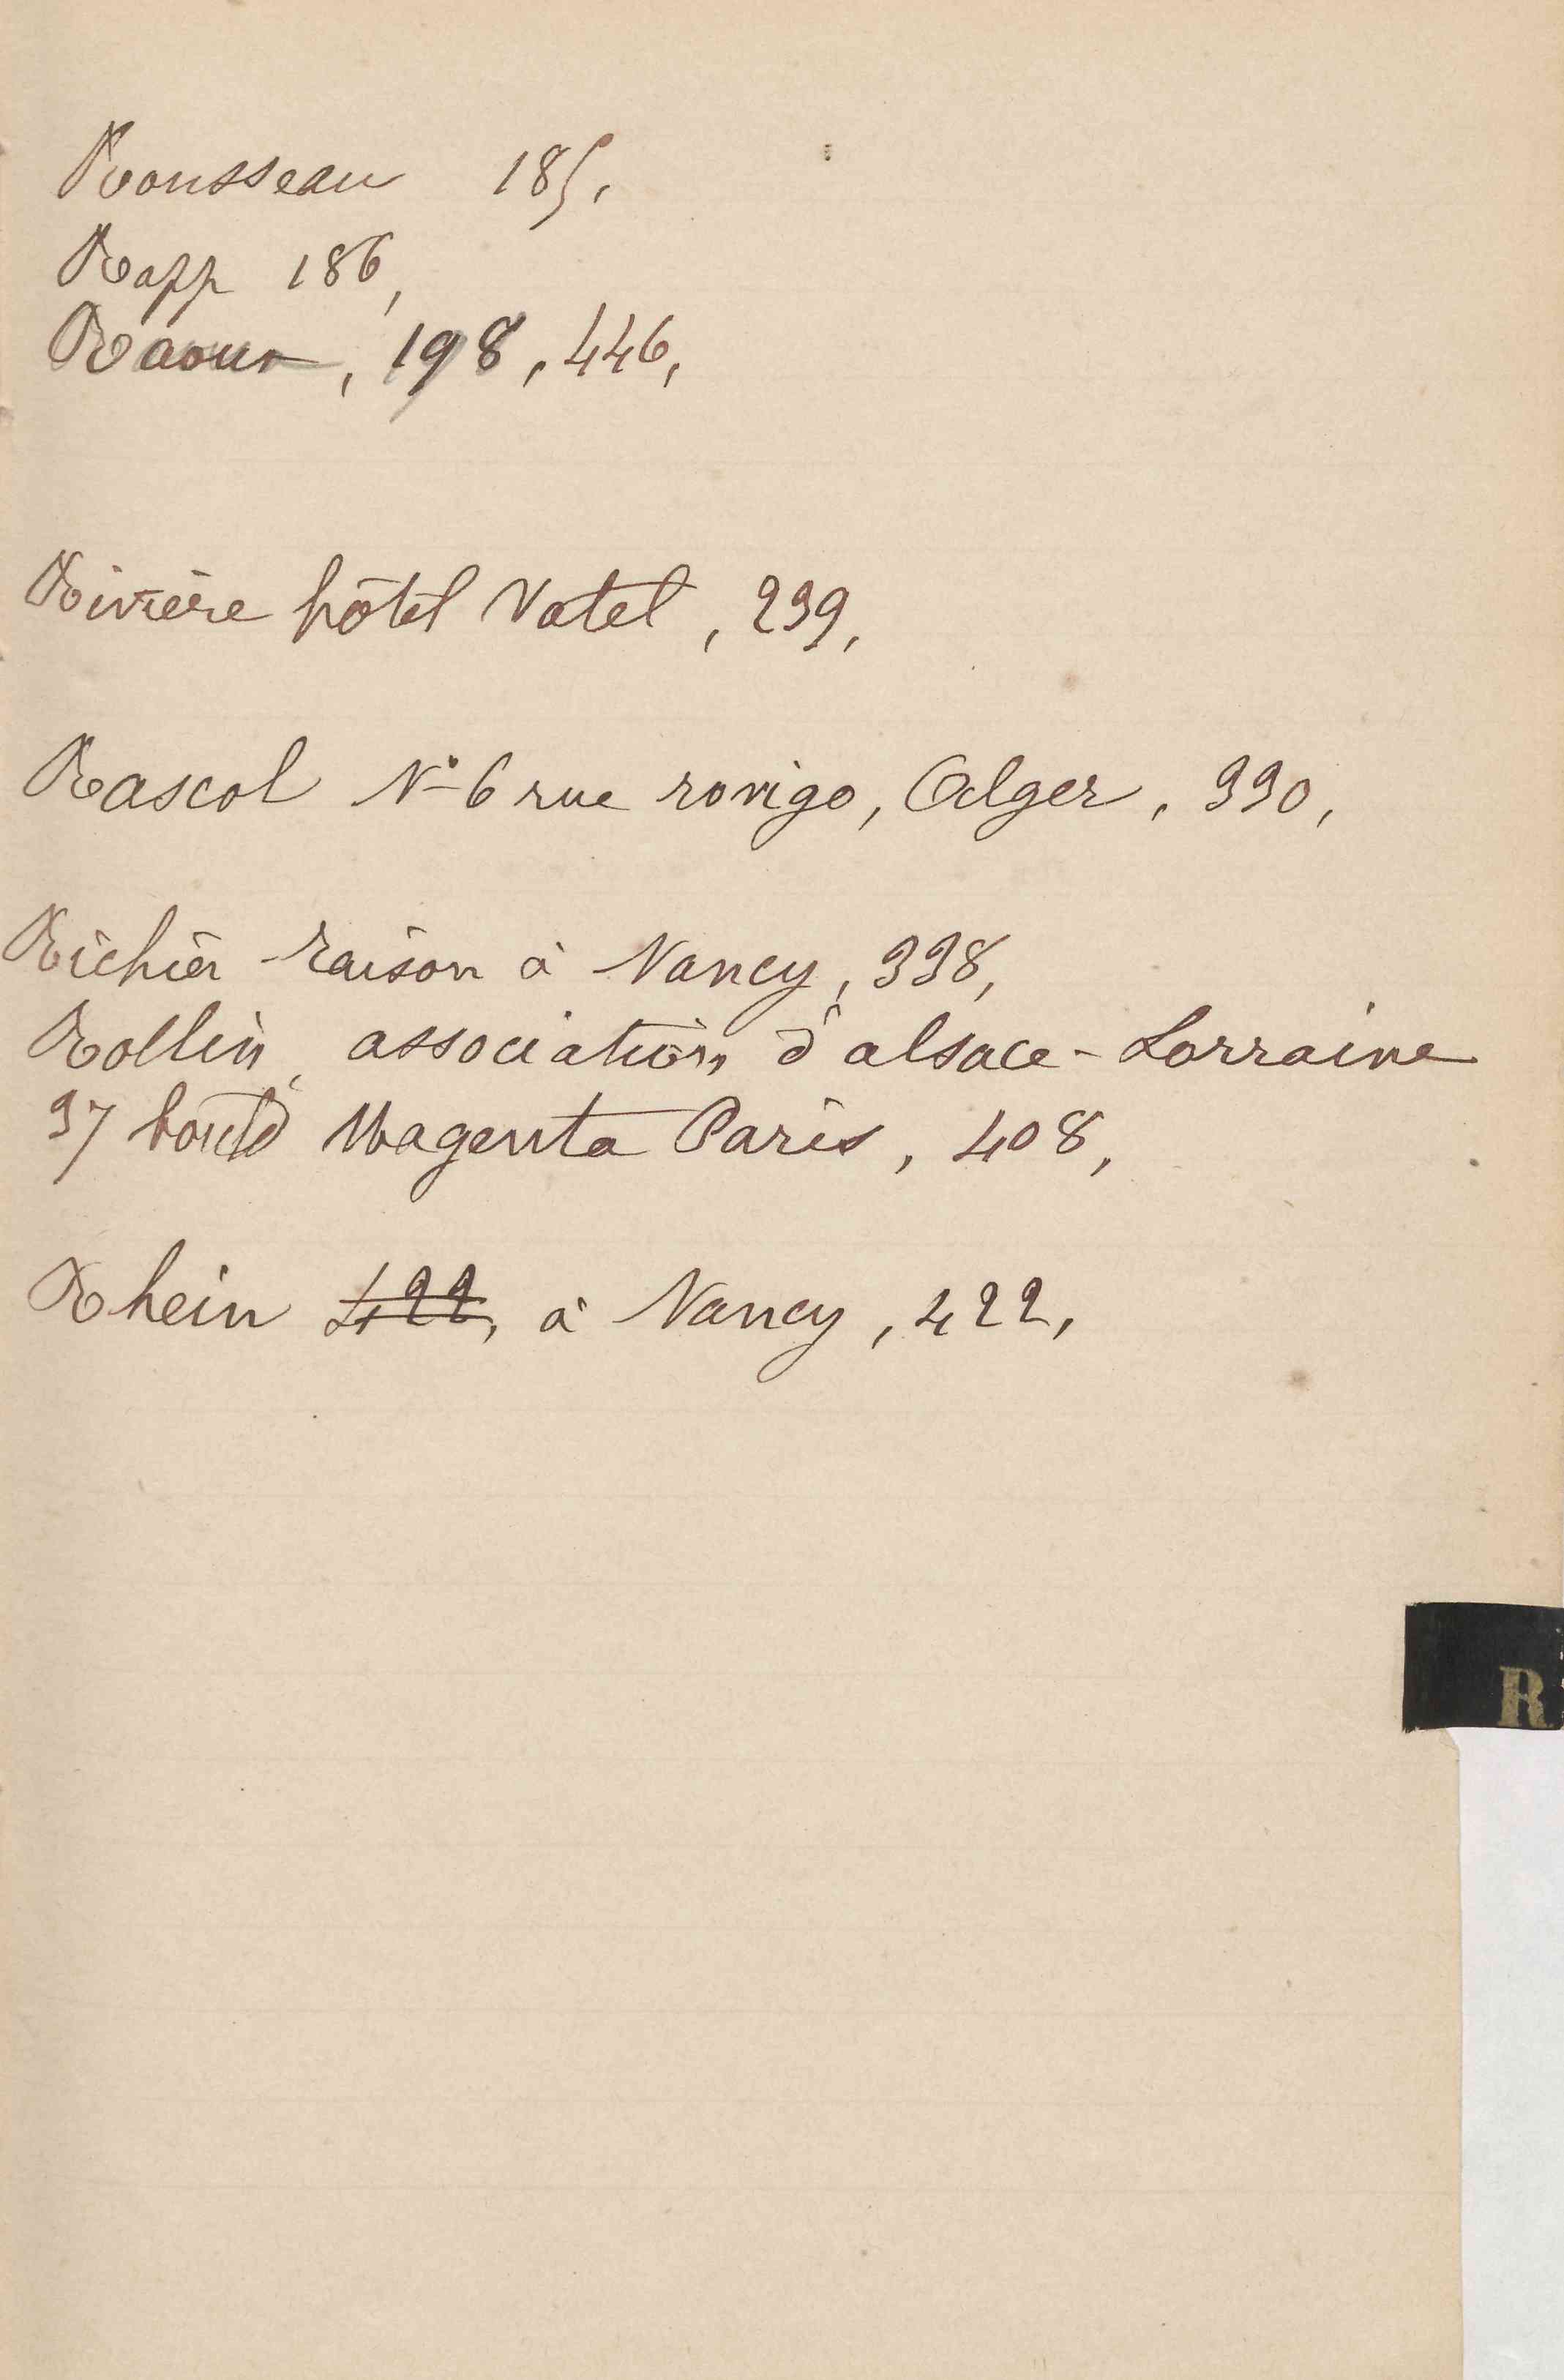 Rousseau 185,
Rapp 186,
Raour, 198, 446,
Rivière hôtel Vatel, 239,
Rascol N° 6 rue rovigo, Alger, 330,
Richier raison à Nancy, 338,
Rollin, association d'alsace-Lorraine
37 boul^d Magenta Paris, 408,
Rhein 422, à Nancy, 422,
R